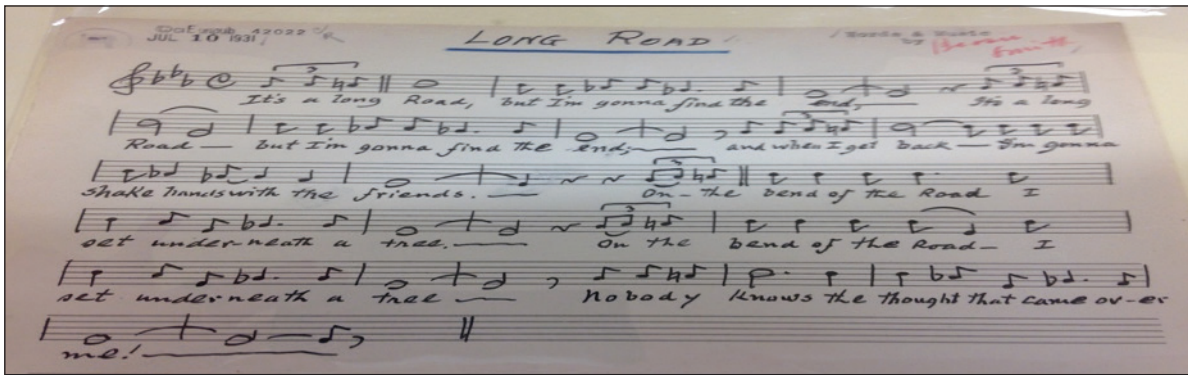 LONG ROAD
©CLE unpub 42022
JUL 10 1931
Words & Music
by Bessie Smith
It's a long Road, but I'm gonna find the end, It's a long
Road — but I'm gonna find the end; and when I get back — I'm gonna
shake hands with the friends. — On - the bend of the Road I
set under neath a tree. — On the bend of the Road — I
set under neath a tree — Nobody knows the thought that came ov-er
me! —